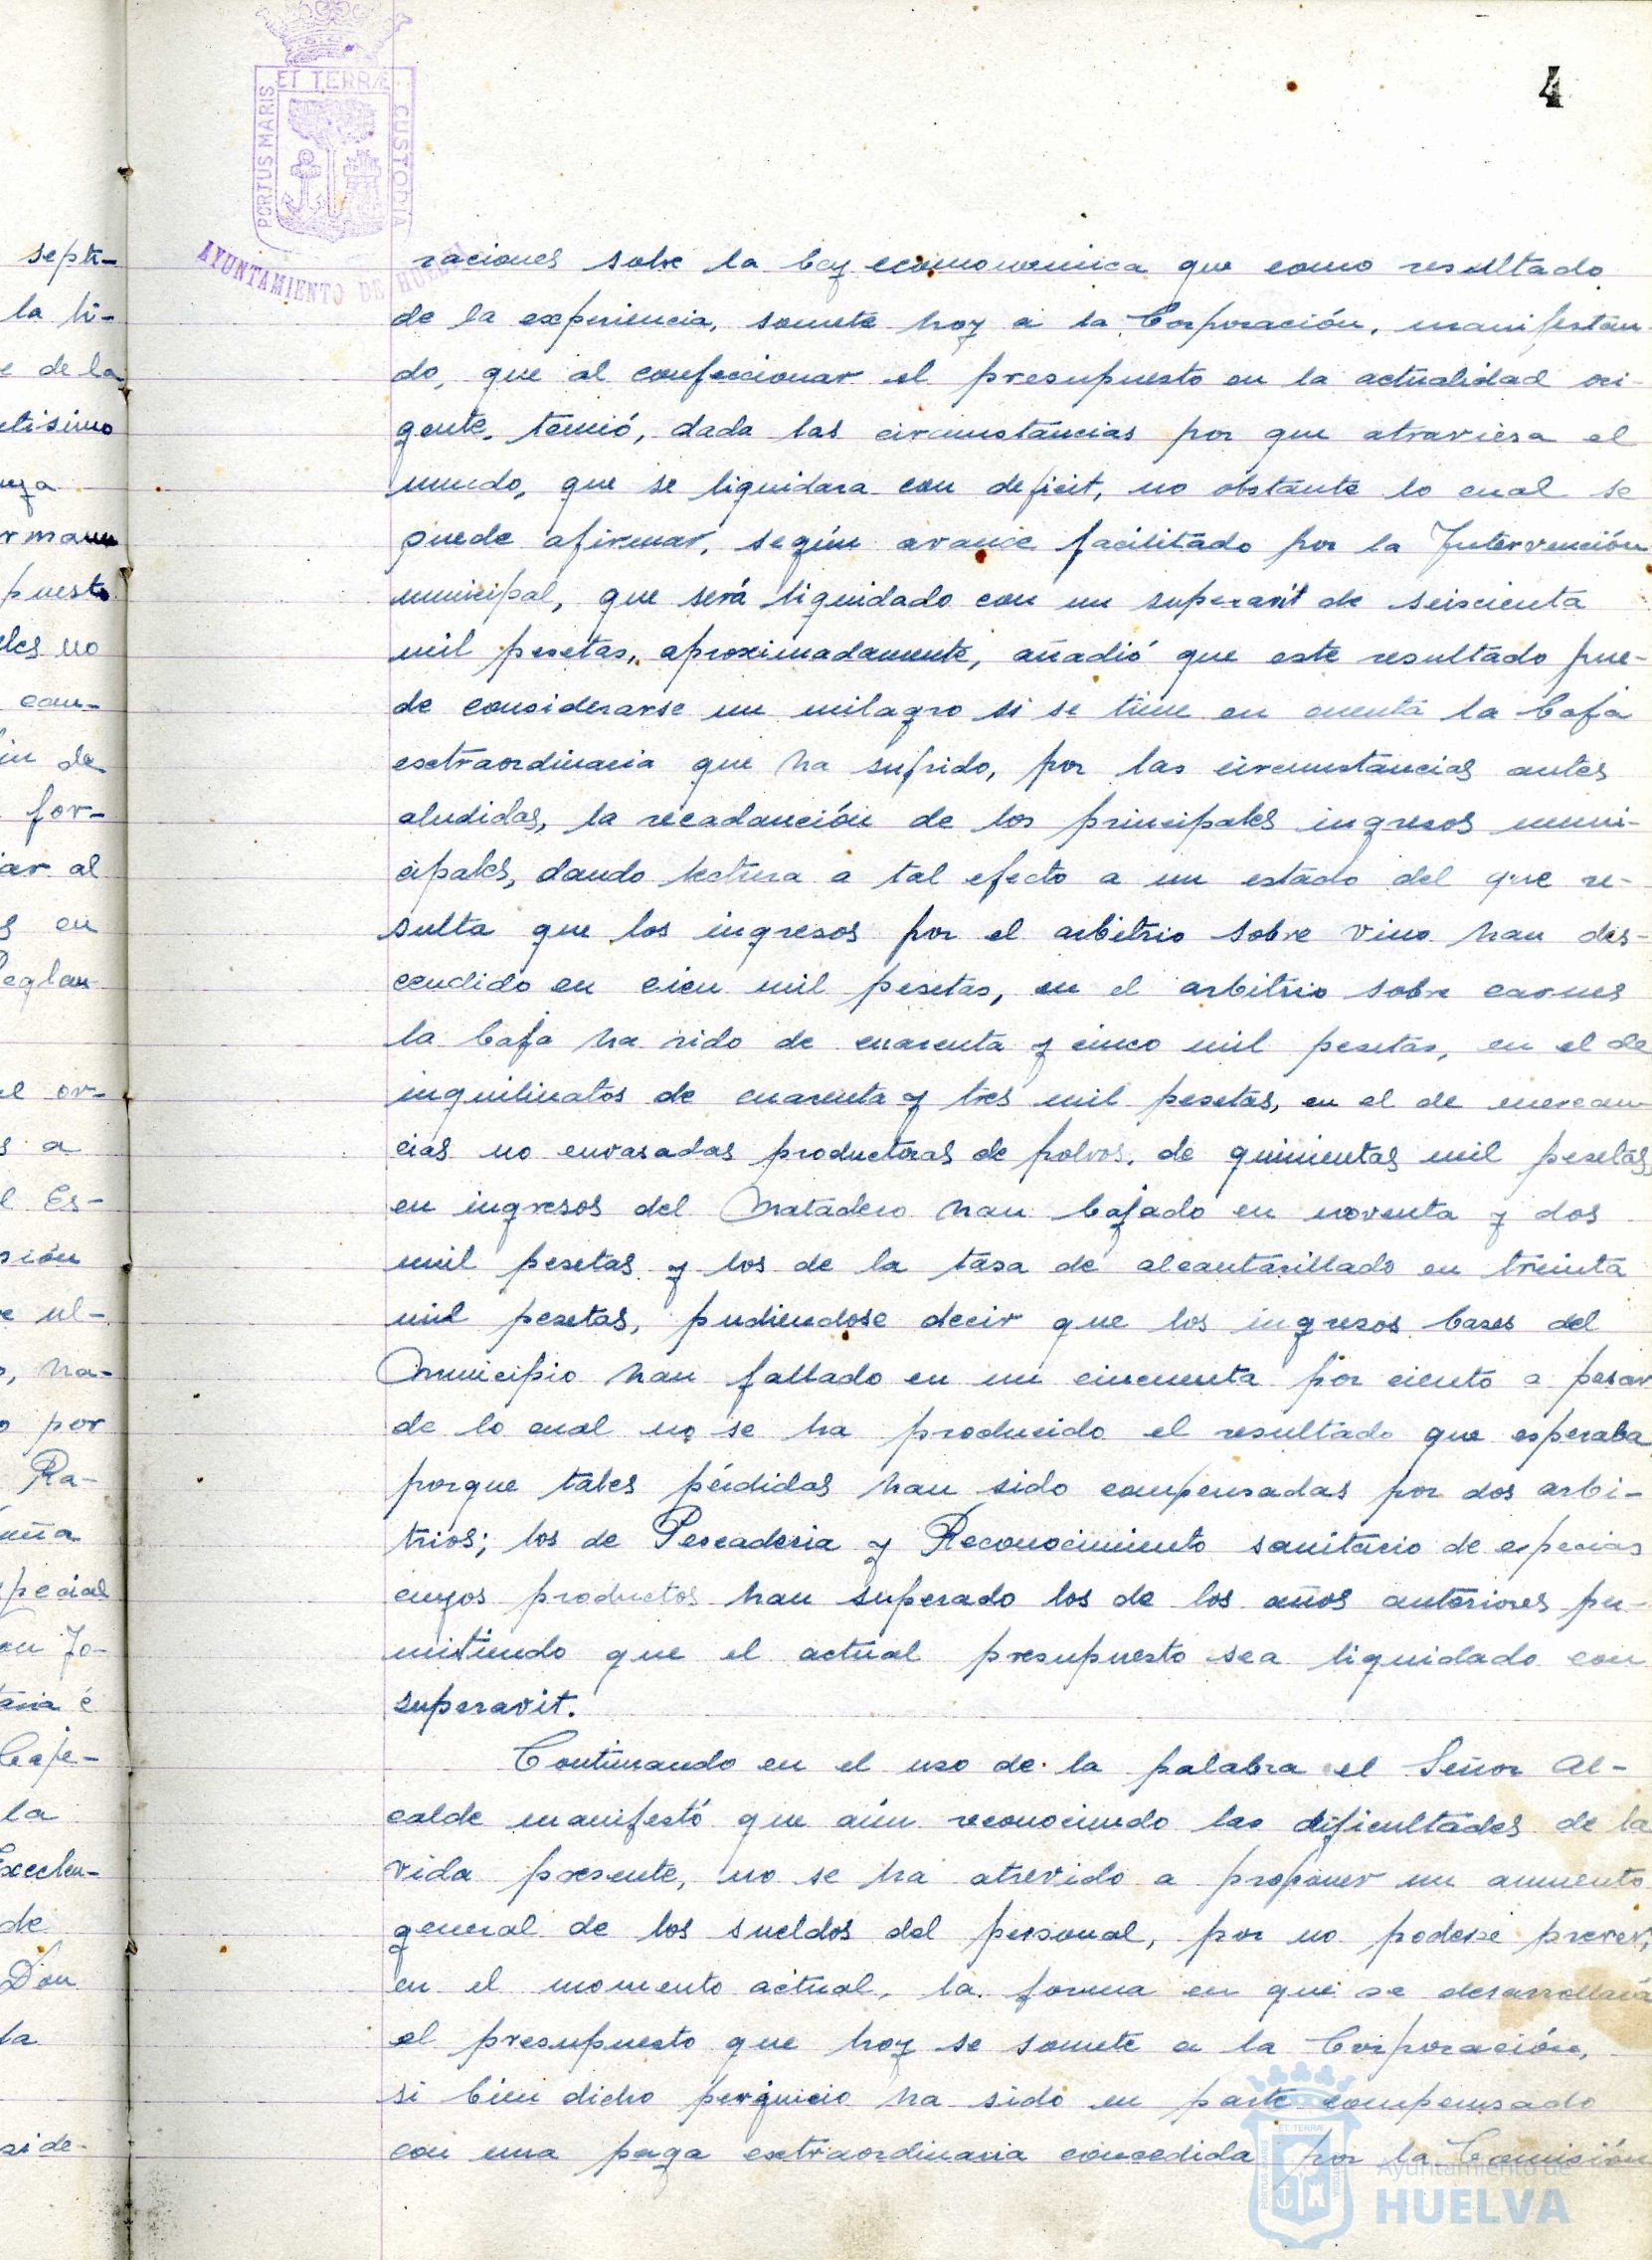 4
PORTUS MARIS ET TERRÆ CUSTODIA
AYUNTAMIENTO DE HUELVA
septi-
la hi-
e de la
tisimo
uza
rman
puesto
eles no
can-
in de
for-
iar al
s en
Reglan
el or-
s a
l Es-
sión
e ul-
o, ha-
o por
Ra-
uña
pecial
on Jo-
taria é
Caje-
la
Excelen-
de
Don
la
side-
raciones sobre la Ley economomica que como resultado
de la experiencia, somete hoy a la Corporación, manifestan-
do, que al confeccionar el presupuesto en la actualidad vi-
gente, temió, dada las circunstancias por que atraviesa el
mundo, que se liquidara con deficit, no obstante lo cual se
puede afirmar, según avance facilitado por la Intervención
municipal, que será liquidado con un superavit de seiscienta
mil pesetas, aproximadamente, añadió que este resultado pue-
de considerarse un milagro si se tiene en cuenta la baja
extraordinaria que ha sufrido, por las circunstancias antes
aludidas, la recadanción de los principales ingresos muni-
cipales, dando lectura a tal efecto a un estado del que re-
sulta que los ingresos por el arbitrio sobre vino han des-
cendido en cien mil pesetas, en el arbitrio sobre carnes
la baja ha sido de cuarenta y cinco mil pesetas, en el de
inquilinatos de cuarenta y tres mil pesetas, en el de mercan-
cias no envasadas productoras de polvos, de quinientas mil pesetas,
en ingresos del Matadero han bajado en noventa y dos
mil pesetas y los de la tasa de alcantarillado en treinta
mil pesetas, pudiendose decir que los ingresos bases del
Municipio han fallado en un cincuenta por ciento a pesar
de lo cual no se ha producido el resultado que esperaba
porque tales pérdidas han sido compensadas por dos arbi-
trios; los de Pescaderia y Reconocimiento sanitario de especias
cuyos productos han superado los de los años anteriores per-
mitiendo que el actual presupuesto sea liquidado con
superavit.
Continuando en el uso de la palabra el Señor Al-
calde manifestó que aún reconociendo las dificultades de la
vida presente, no se ha atrevido a proponer un aumento
general de los sueldos del personal, por no poderse prever,
en el momento actual, la forma en que se desarrollará
el presupuesto que hoy se somete a la Corporación,
si bien dicho perjuicio ha sido en parte compensado
con una paga extraordinaria concedida por la Comisión
Ayuntamiento de
HUELVA